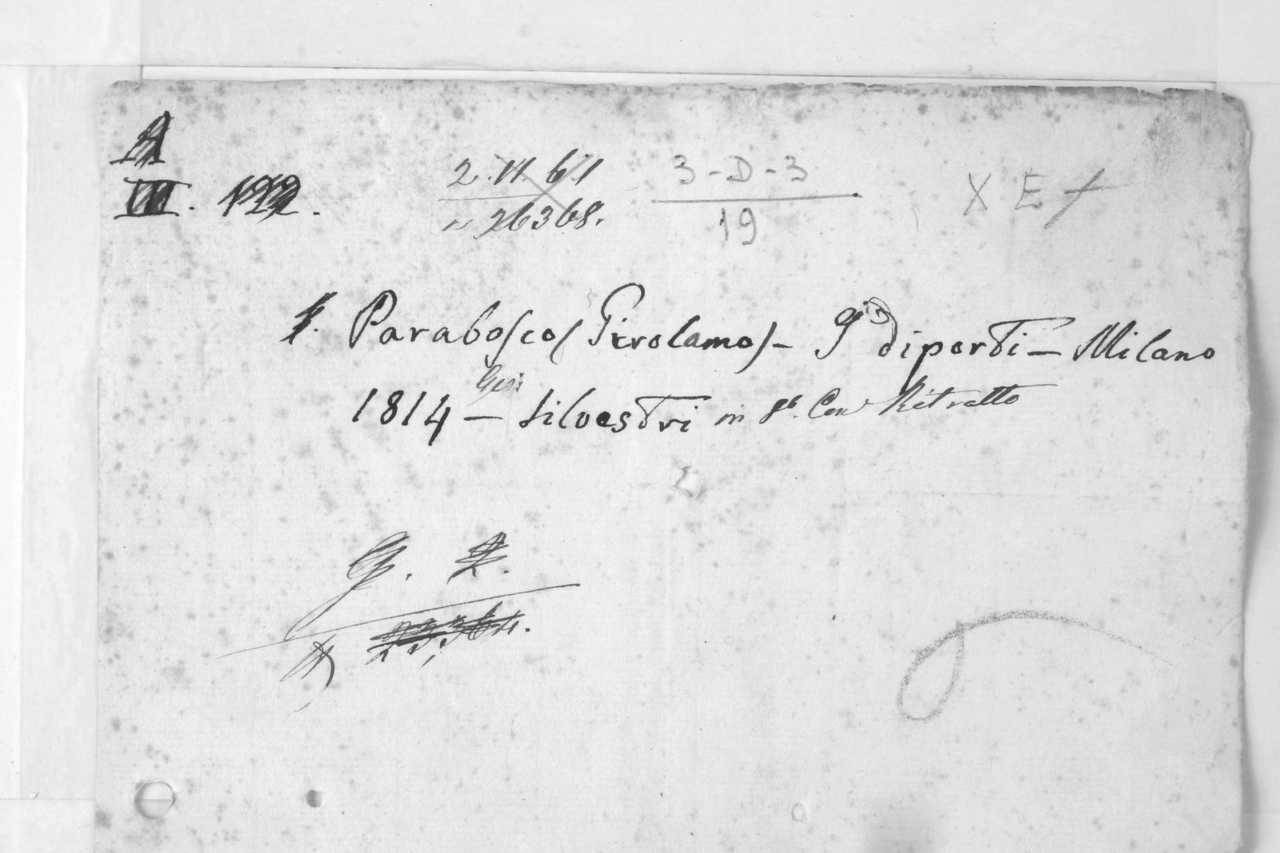 A
III. 122.
2. 11 61
n 26368.
3-D-3
19
X E
1. Parabosco (Girolamo) - I diporti - Milano
1814 - Silvestri in 8°. Con Ritratto
G.
23,364.